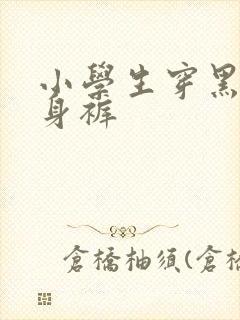 小學生穿黑
身褲
倉橋柚須(倉橋